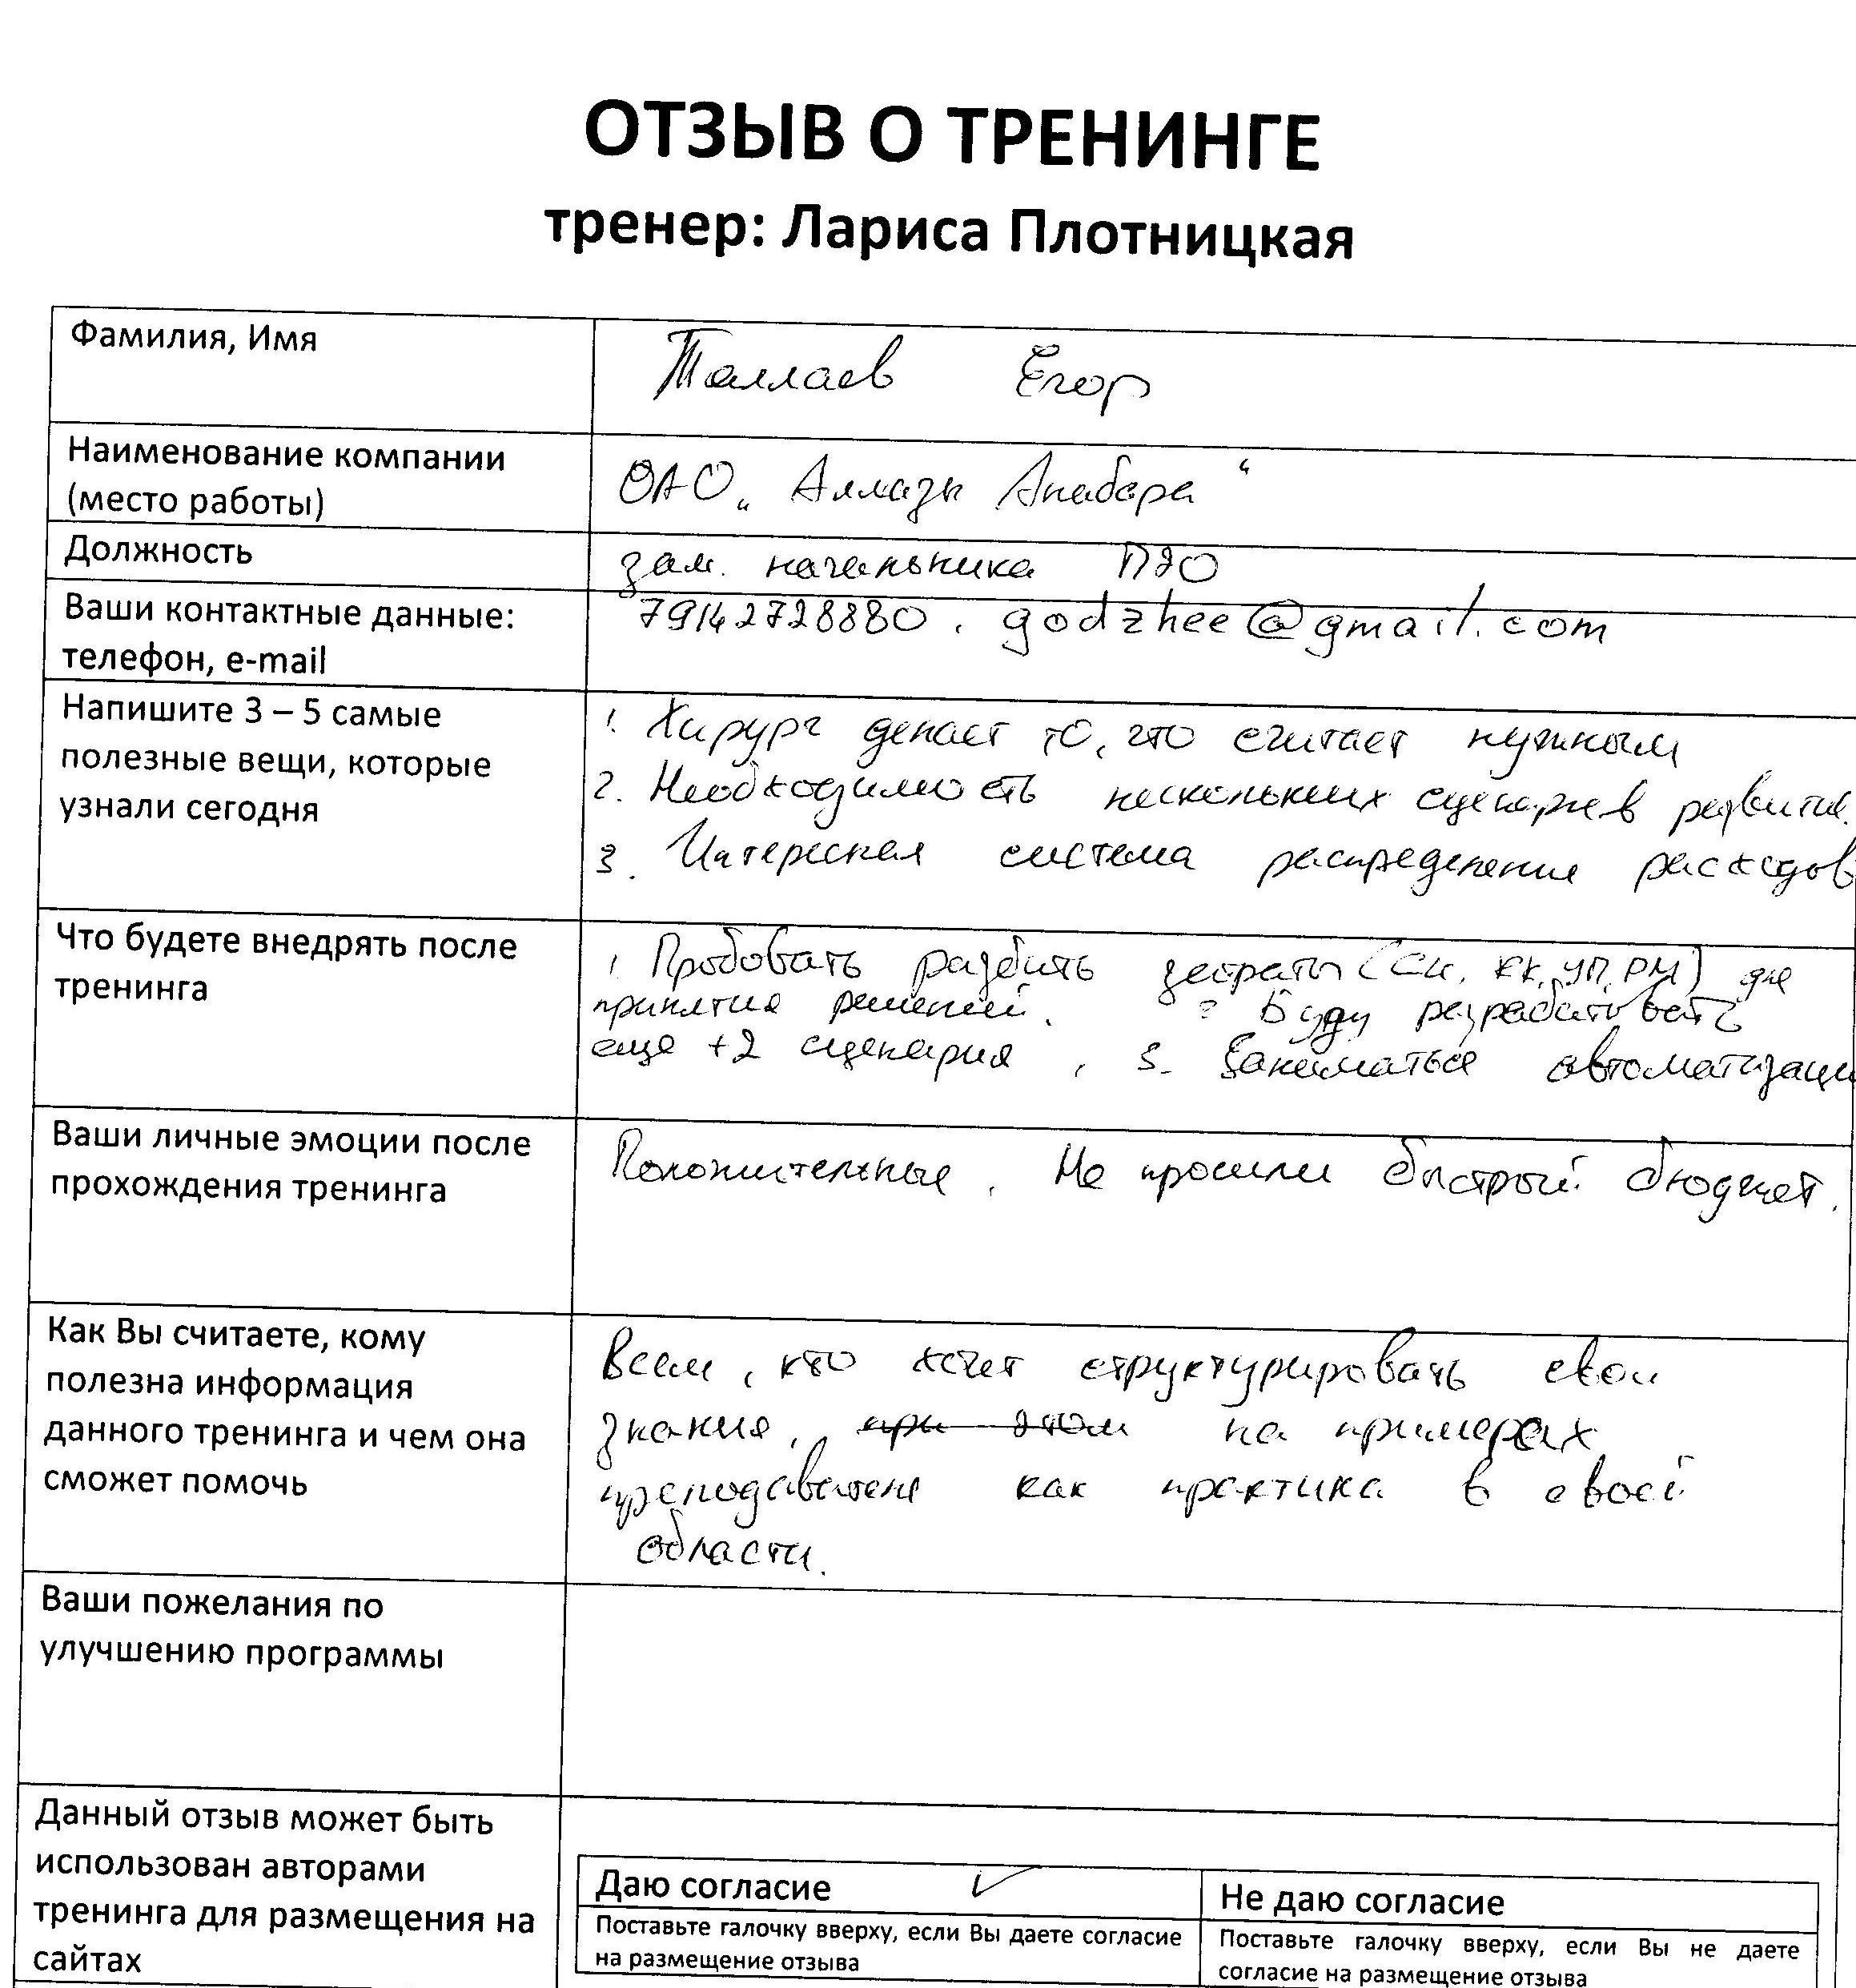 ОТЗЫВ О ТРЕНИНГЕ
тренер: Лариса Плотницкая
Фамилия, Имя
Егор
Наименование компании
(место работы)
ОАО „Алмазы Анабара“
Должность
зам. начальника ПЭО
Ваши контактные данные:
телефон, e-mail
79142728880, godzhee@gmail.com
Напишите 3 – 5 самые
полезные вещи, которые
узнали сегодня
1. Хирург делает то, что считает нужным
2. Необходимость нескольких сценариев развития.
3. Интересная система распределения расходов
Что будете внедрять после
тренинга
1. Пробовать разбить затраты (СИ, КК, УП, РМ) для
принятия решений. 2 Буду разрабатывать
еще +2 сценария, 3. Заниматься автоматизаци
Ваши личные эмоции после
прохождения тренинга
Положительные. Не прошли быстрый бюджет.
Как Вы считаете, кому
полезна информация
данного тренинга и чем она
сможет помочь
Всем, кто хочет структурировать свои
знания, при этом на примерах
преподавателя как практика в своей
области.
Ваши пожелания по
улучшению программы
Данный отзыв может быть
использован авторами
тренинга для размещения на
сайтах
Даю согласие ✓
Поставьте галочку вверху, если Вы даете согласие
на размещение отзыва
Не даю согласие
Поставьте галочку вверху, если Вы не даете
согласие на размещение отзыва